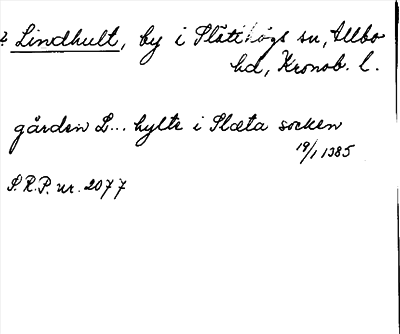 ? Lindhult, by i Slätthögs sn, Allbo
hd, Kronob. l.
gården L... hylte i Slæta socken
19/1 1385
S.R.P. nr. 2077